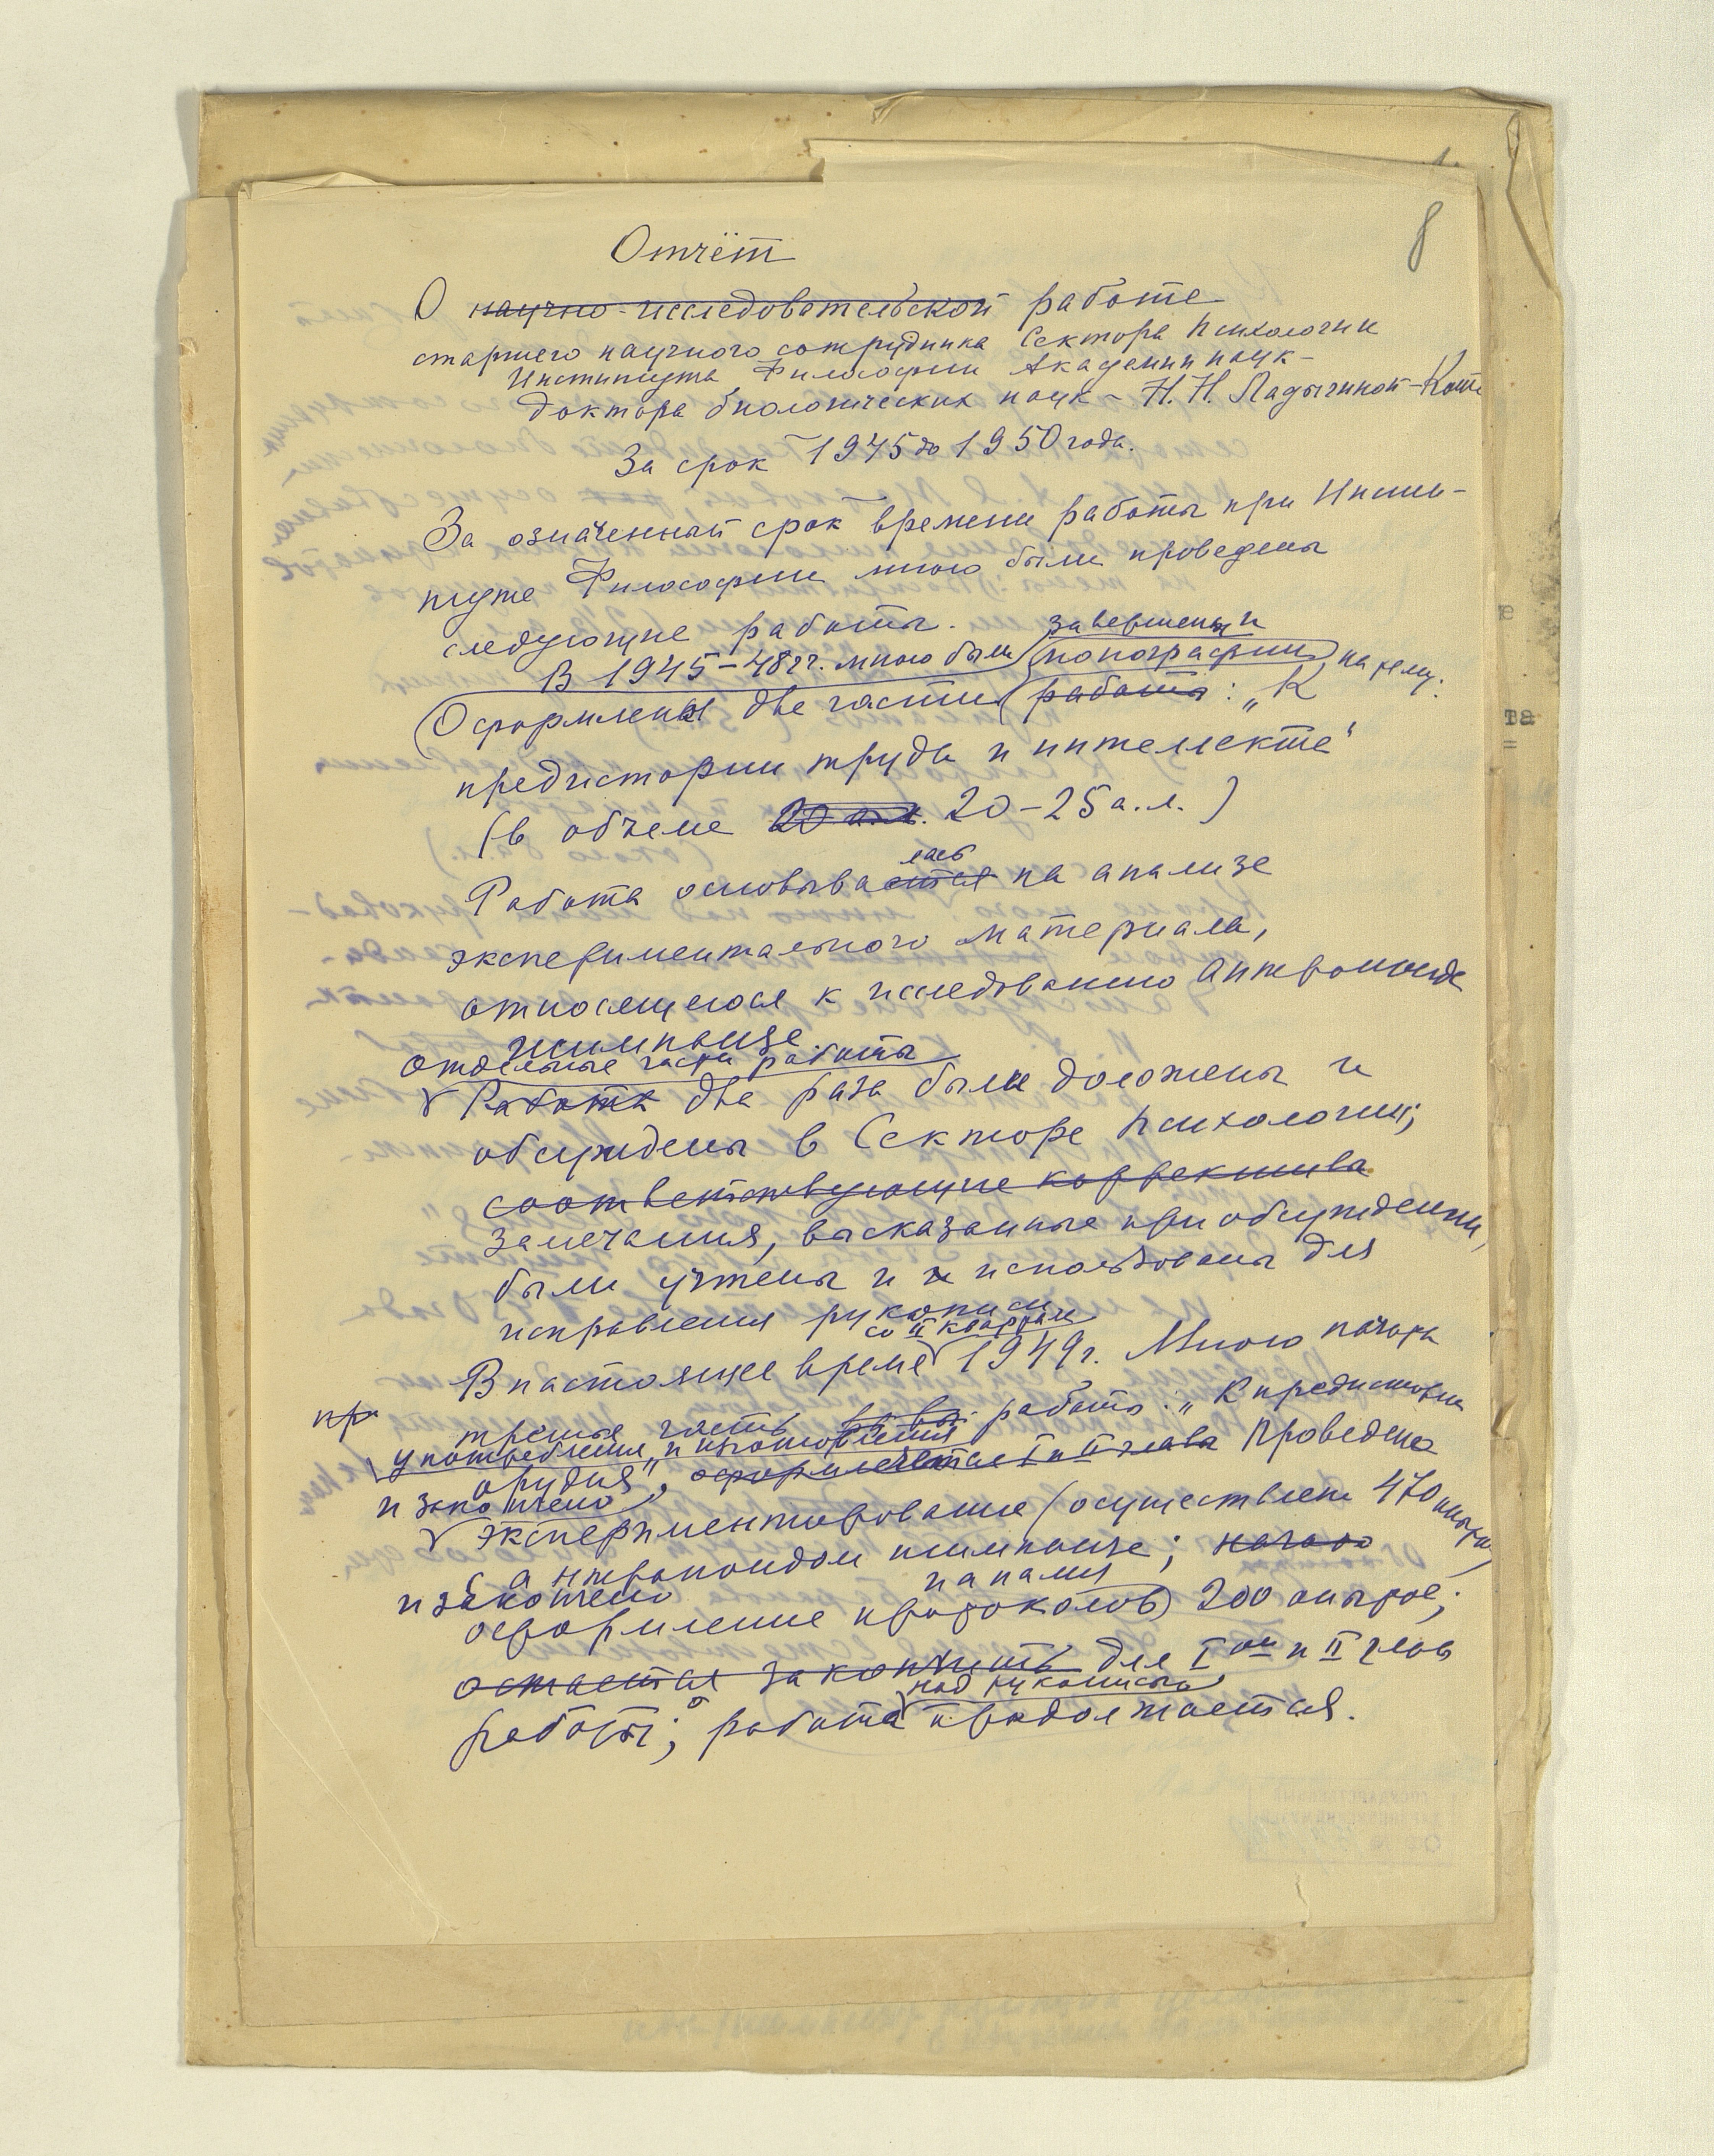 8
Отчёт
О научно-исследовательской работе
старшего научного сотрудника Сектора Психологии
Института Философии Академии наук –
доктора биологических наук – Н. Н. Ладыгиной-Котс
За срок 1945 до 1950 года.
За означенный срок времени работы при Инсти-
туте Философии мною были проведены
следующие работы.
завершены и
В 1945–48 гг. мною были монографии на тему:
Оформлены две части работы: „К
предистории труда и интеллекта"
(в объеме 20 а.л. 20–25 а.л.)
лась
Работа основывается на анализе
экспериментального материала,
относящегося к исследованию антропоида
шимпанзе.
отдельные части работы
Работа два раза были доложены и
обсуждены в Секторе психологии;
соответствующие коррективы
замечания, высказанные при обсуждении,
были учтены и использованы для
исправления рукописи
со II квартала
В настоящее время 1949 г. Мною начата
пр
третья часть работы: „К предистории
употребления и изготовления
орудия", оформляется I и II глава Проведено
и закончено
экспериментирование (осуществлен 470 опытов)
с антропоидом шимпанзе; начато
и закончено
нами
оформление протоколов) 200 опытов;
остается закончить для I ой и II глав
над рукописью
работы; работа продолжается.